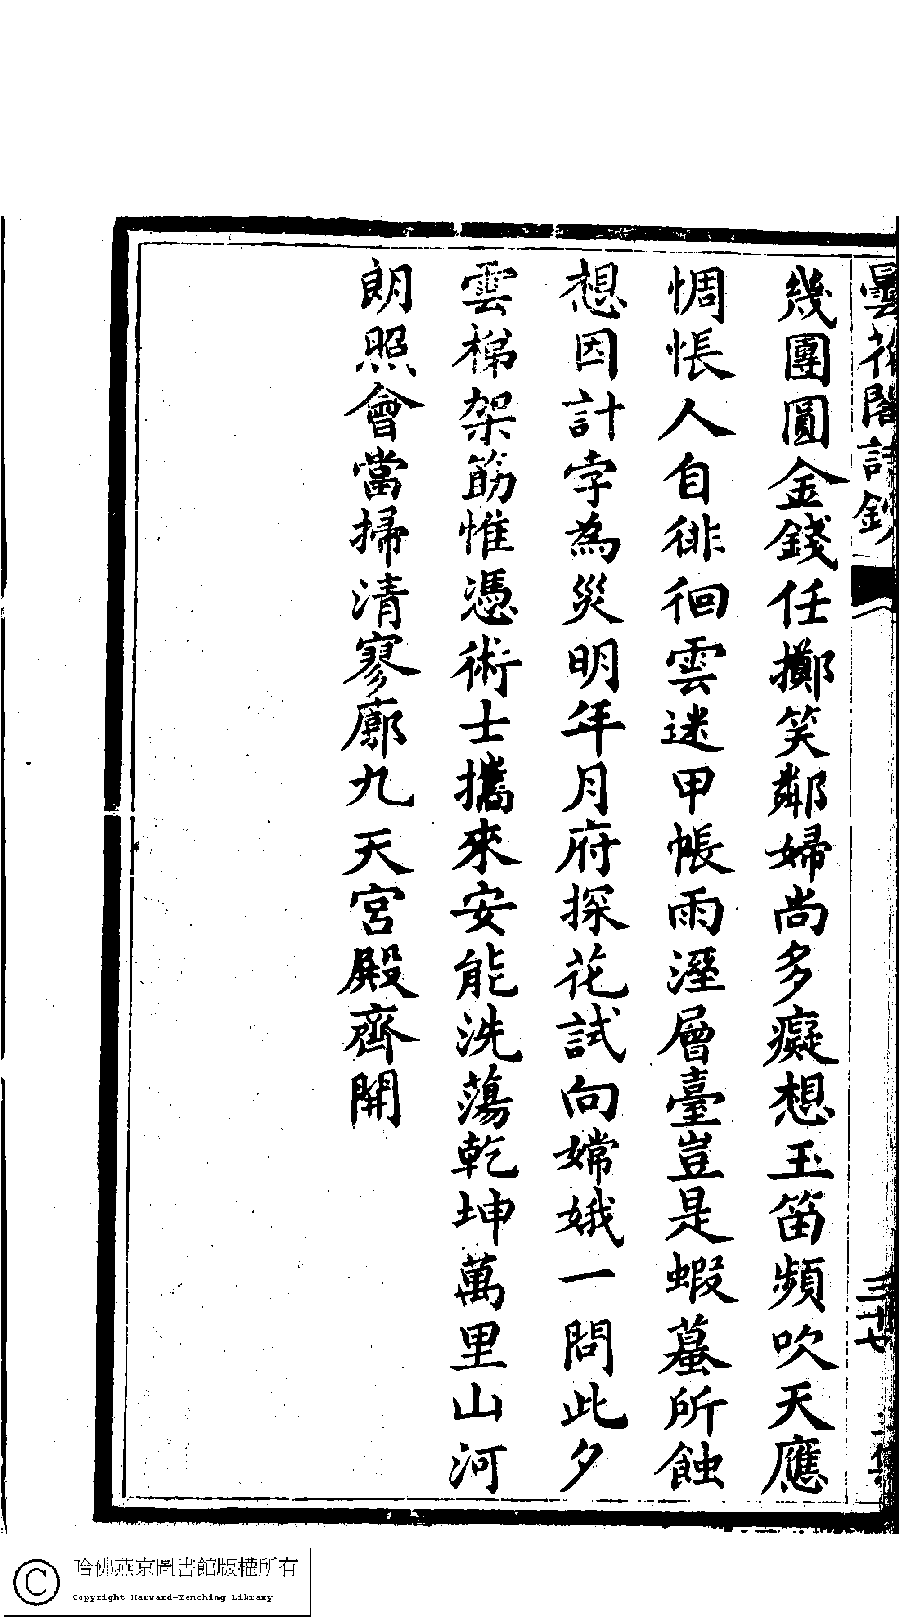 曇花閣詩鈔
三十七
幾團圓金錢任擲笑鄰婦尚多癡想玉笛頻吹天應
惆悵人自徘徊雲迷甲帳雨溼層臺豈是蝦蟇所蝕
想因計孛為災明年月府探花試向嫦娥一問此夕
雲梯架筯惟憑術士攜來安能洗蕩乾坤萬里山河
朗照會當掃清寥廓九天宮殿齊開
哈佛燕京圖書館版權所有
Copyright Harvard-Yenching Library